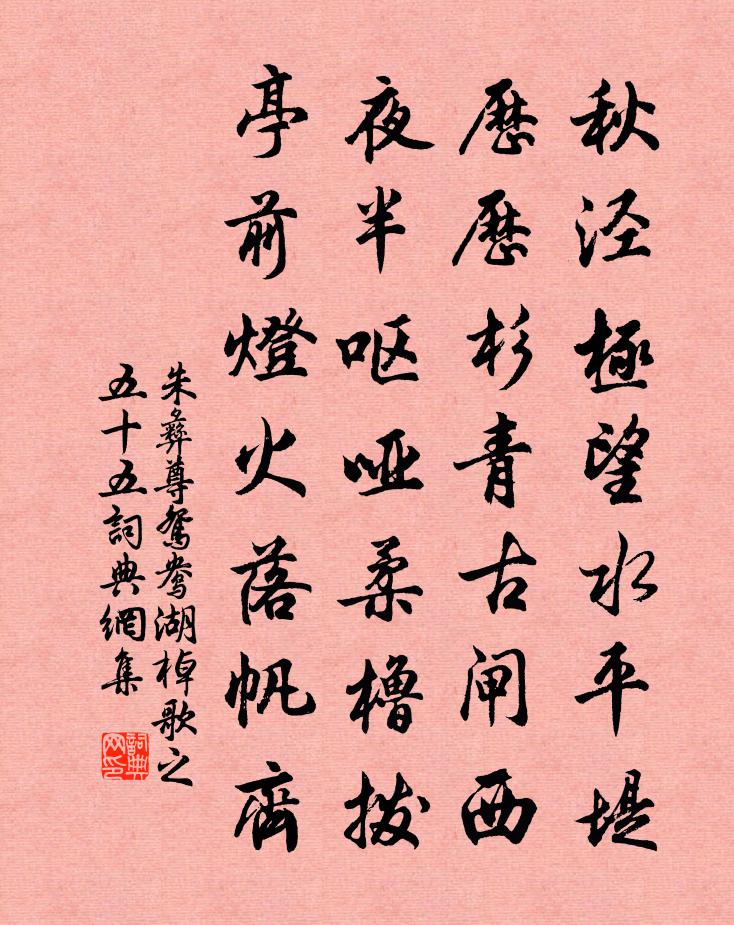 秋泾極望水平堤
歷歷杉青古闸西
夜半呕哑柔橹拨
亭前燈火落帆齊
朱彝尊鴛鴦湖棹歌之
五十五詞典網集
詞典网印